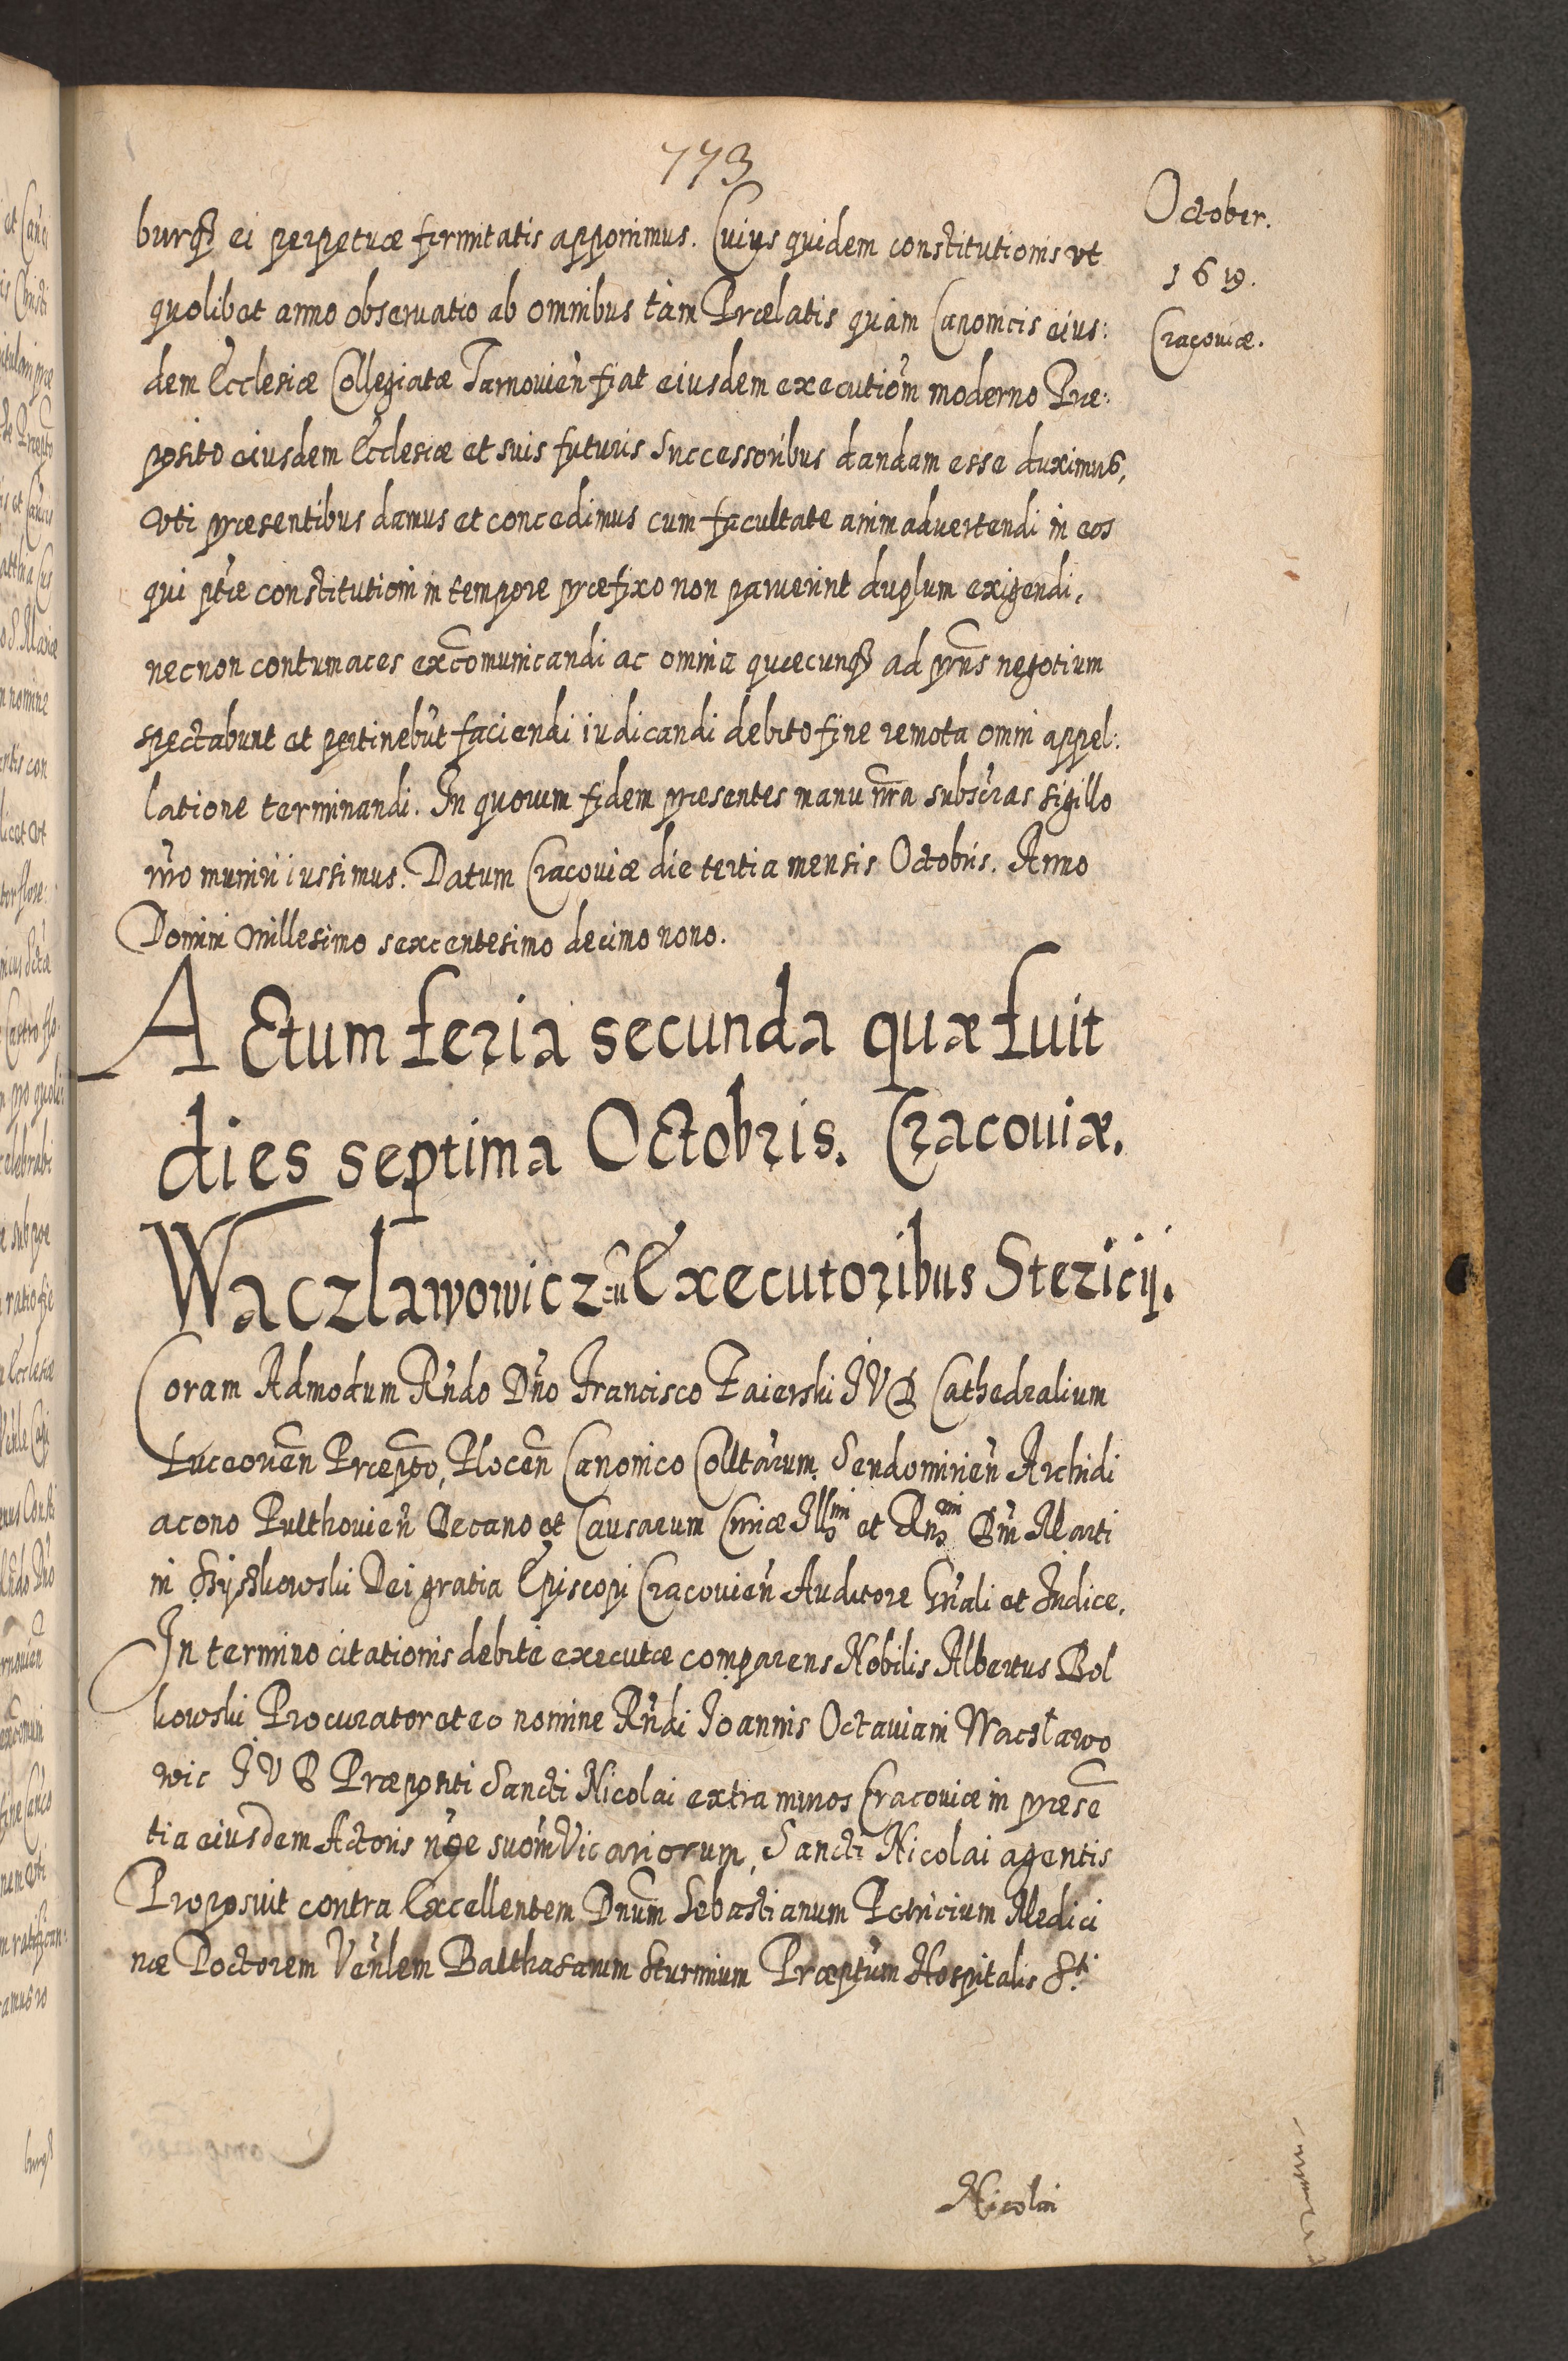 773
October.
1619.
Cracoviæ.
burqȝ ei perpetuæ firmitatis apponimus. Cuius quidem constitutionis vt
quolibet anno obseruatio ab omnibus tàm Prælatis quàm Canonicis eius:
dem Ecclesiæ Collegiatæ Tarnovien̄ fiat eiusdem executiom̄ moderno Præ:
posito eiusdem Ecclesiæ et suis futuris Successoribus dandam esse duximus,
Vti præsentibus damus et concedimus cum facultate animaduertendi in eos
qui pt̄ie constitutioni in tempore præfixo non paruerint duplum exigendi,
necnon contumaces excōmunicandi ac omnia quæcunqȝ ad pn̄s negotium
spectabunt et pertinebūt faciendi iudicandi debito fine remota omni appel:
latione terminandi. In quorum fidem præsentes manu nr̄a subscr̄as sigillo
nr̄o muniri iussimus. Datum Cracoviæ die tertia mensis Octobris. Anno
Domini Millesimo sexcentesimo decimo nono.
Actum feria secunda quæ fuit
dies septima Octobris. Cracouiæ.
Waczlawowicz cū Executoribus Stezicij.
Coram Admodum Rn̄do Dn̄o Francisco Zaierski I V D Cathedralium
Luceoven̄ Præpto, Plocen̄ Canonico Colltarum Sendomirien̄ Archidi
acono Pulthovien̄ Decano et Causarum Curiæ Illmi et Rn̄mi Dn̄i Marti
ni Szyszkowski Dei gratia Episcopi Cracovien̄ Auditore Gn̄ali et Iudice.
In termino citationis debitè executæ comparens Nobilis Albertus Bol
kowski Procurator et eo nomine Rn̄di Ioannis Octaviani Wacsławo
wic I V D Præpositi Sancti Nicolai extra muros Cracoviæ in præsē
tia eiusdem Actoris nōe suom̄ Vicariorum, Sancti Nicolai agentis
Proposuit contra Excellentem Dn̄um Sebastianum Petricium Medici
næ Doctorem Ven̄lem Balthasarum Sturmium Præptum Hospitalis Sti
Nicolai